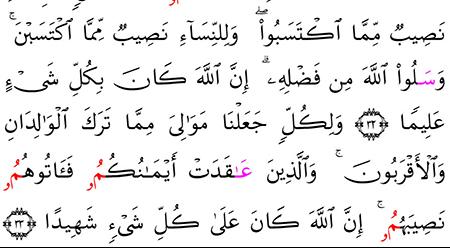 نَصِيبٌ مِّمَّا ٱكْتَسَبُواْ ۖ وَلِلنِّسَآءِ نَصِيبٌ مِّمَّا ٱكْتَسَبْنَ ۚ
وَسَلُواْ ٱللَّهَ مِن فَضْلِهِۦٓ ۗ إِنَّ ٱللَّهَ كَانَ بِكُلِّ شَىْءٍ
عَلِيمًا ٣٢ وَلِكُلٍّ جَعَلْنَا مَوَٰلِىَ مِمَّا تَرَكَ ٱلْوَٰلِدَانِ
وَٱلْأَقْرَبُونَ ۚ وَٱلَّذِينَ عَٰقَدَتْ أَيْمَٰنُكُمُۥ فَـَٔاتُوهُمُۥ
نَصِيبَهُمُۥٓ ۚ إِنَّ ٱللَّهَ كَانَ عَلَىٰ كُلِّ شَىْءٍ شَهِيدًا ٣٣